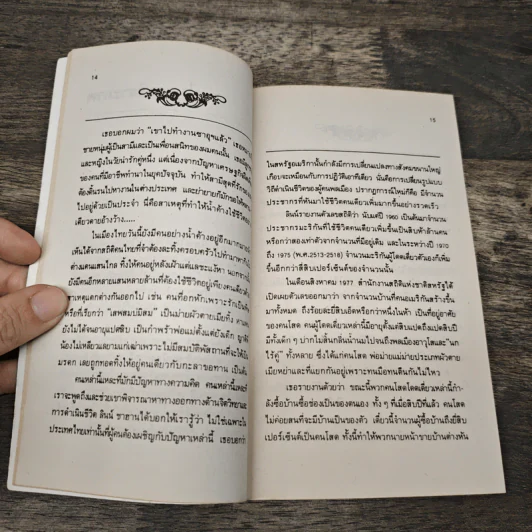 14
เธอบอกผมว่า "เขาไปทำงานซาอุฯแล้ว"
ชายหนุ่มผู้เป็นสามีและเป็นเพื่อนสนิทของผมคนนั้น
และหญิงในวัยน่ารักคู่หนึ่ง แต่เนื่องจากปัญหาเศรษฐกิจ
ของคนที่มีอาชีพทำนาในยุคปัจจุบัน ทำให้สามีสุดที่รัก
ต้องดิ้นรนไปทำงานในต่างประเทศ และย่ายายก็มักรอให้
ไปอยู่ด้วยเป็นประจำ นี่คือสาเหตุที่ทำให้น้าด้างใช้ชีวิต
เดียวดายอ้างว้าง.....
ในเมืองไทยวันนี้ยังมีคนอย่างน้าด้างอยู่อีกมากมาย
เห็นได้จากสถิติคนไทยที่จำต้องละทิ้งครอบครัวไปทำมาหากิน
ต่างแดนแสนไกล ทิ้งให้คนอยู่หลังเฝ้าแต่แลชะแง้หา นอกจาก
ยังมีคนอีกหลายแสนหลายล้านที่ต้องใช้ชีวิตอยู่เพียงคนเดียว
สาเหตุแตกต่างกันออกไป เช่น คนที่อกหักเพราะรักเป็นพิษ
หรือที่เรียกว่า "เสพสมบ่มิสม" เป็นม่ายผัวตายเมียทิ้ง
ยังไม่ได้จนอายุแปดสิบ เป็นกำพร้าพ่อแม่ตั้งแต่ยังเด็ก
น้องไม่เหลียวแลยามแก่เฒ่าเพราะไม่มีสมบัติพัสถานที่จะให้เป็น
มรดก เลยถูกทอดทิ้งให้อยู่คนเดียวกับกะลาขอทาน เป็นต้น
คนเหล่านี้แหละที่มักมีปัญหาทางความคิด คนเหล่านี้แหละที่
เราจะพูดถึงและช่วยเขาพิจารณาหาทางออกทางด้านจิตวิทยาและ
การดำเนินชีวิต ลินน์ ชาฮานได้บอกให้เรารู้ว่า ไม่ใช่เฉพาะใน
ประเทศไทยเท่านั้นที่ผู้คนต้องเผชิญกับปัญหาเหล่านี้ เธอบอกว่า
15
ในสหรัฐอเมริกานั้นกำลังมีการเปลี่ยนแปลงทางสังคมขนานใหญ่
เกือบจะเหมือนกับการปฏิวัติเอาทีเดียว นั่นคือการเปลี่ยนรูปแบบ
วิถีดำเนินชีวิตของผู้คนพลเมือง ปรากฏการณ์ใหม่ก็คือ มีจำนวน
ประชากรที่หันมาใช้ชีวิตคนเดียวเพิ่มมากขึ้นอย่างรวดเร็ว
ลินน์รายงานตัวเลขสถิติว่า นับแต่ปี 1960 เป็นต้นมาจำนวน
ประชากรมะริกันที่ใช้ชีวิตคนเดียวเพิ่มขึ้นเป็นสิบห้าล้านคน
หรือกว่าสองเท่าตัวจากจำนวนที่มีอยู่เดิม และในระหว่างปี 1970
ถึง 1975 (พ.ศ.2513-2518) จำนวนมะริกันผู้โดดเดี่ยวตัวเองก็เพิ่ม
ขึ้นอีกกว่าสี่สิบเปอร์เซ็นต์ของจำนวนนั้น
ในเดือนสิงหาคม 1977 สำนักงานสถิติแห่งชาติสหรัฐได้
เปิดเผยตัวเลขออกมาว่า จากจำนวนบ้านที่คนอเมริกันสร้างขึ้น
มาทั้งหมด ถึงร้อยละยี่สิบเอ็ดหรือกว่าหนึ่งในห้า เป็นที่อยู่อาศัย
ของคนโสด ผู้คนโดดเดี่ยวเหล่านี้มีอายุตั้งแต่สิบแปดถึงแปดสิบปี
มีทั้งเด็ก ๆ ปากไม่สิ้นกลิ่นน้ำนมไปจนถึงพลเมืองอาวุโสและ "นก
ไร้คู่" ทั้งหลาย ซึ่งได้แก่คนโสด พ่อม่ายแม่ม่ายประเภทผัวตาย
เมียหย่าและที่แยกกันอยู่เพราะทนมือทนตีนกันไม่ไหว
เธอรายงานด้วยว่า ขณะนี้พวกคนโสดโดดเดี่ยวเหล่านี้กำ-
ลังซื้อบ้านซื้อช่องเป็นของตนเอง ทั้ง ๆ ที่เมื่อสิบปีที่แล้ว คนโสด
ไม่ค่อยสนที่จะมีบ้านเป็นของตัว เดี๋ยวนี้จำนวนผู้ซื้อบ้านถึงยี่สิบ
เปอร์เซ็นต์เป็นคนโสด ทั้งนี้ทำให้พวกนายหน้าขายบ้านต่างหัน